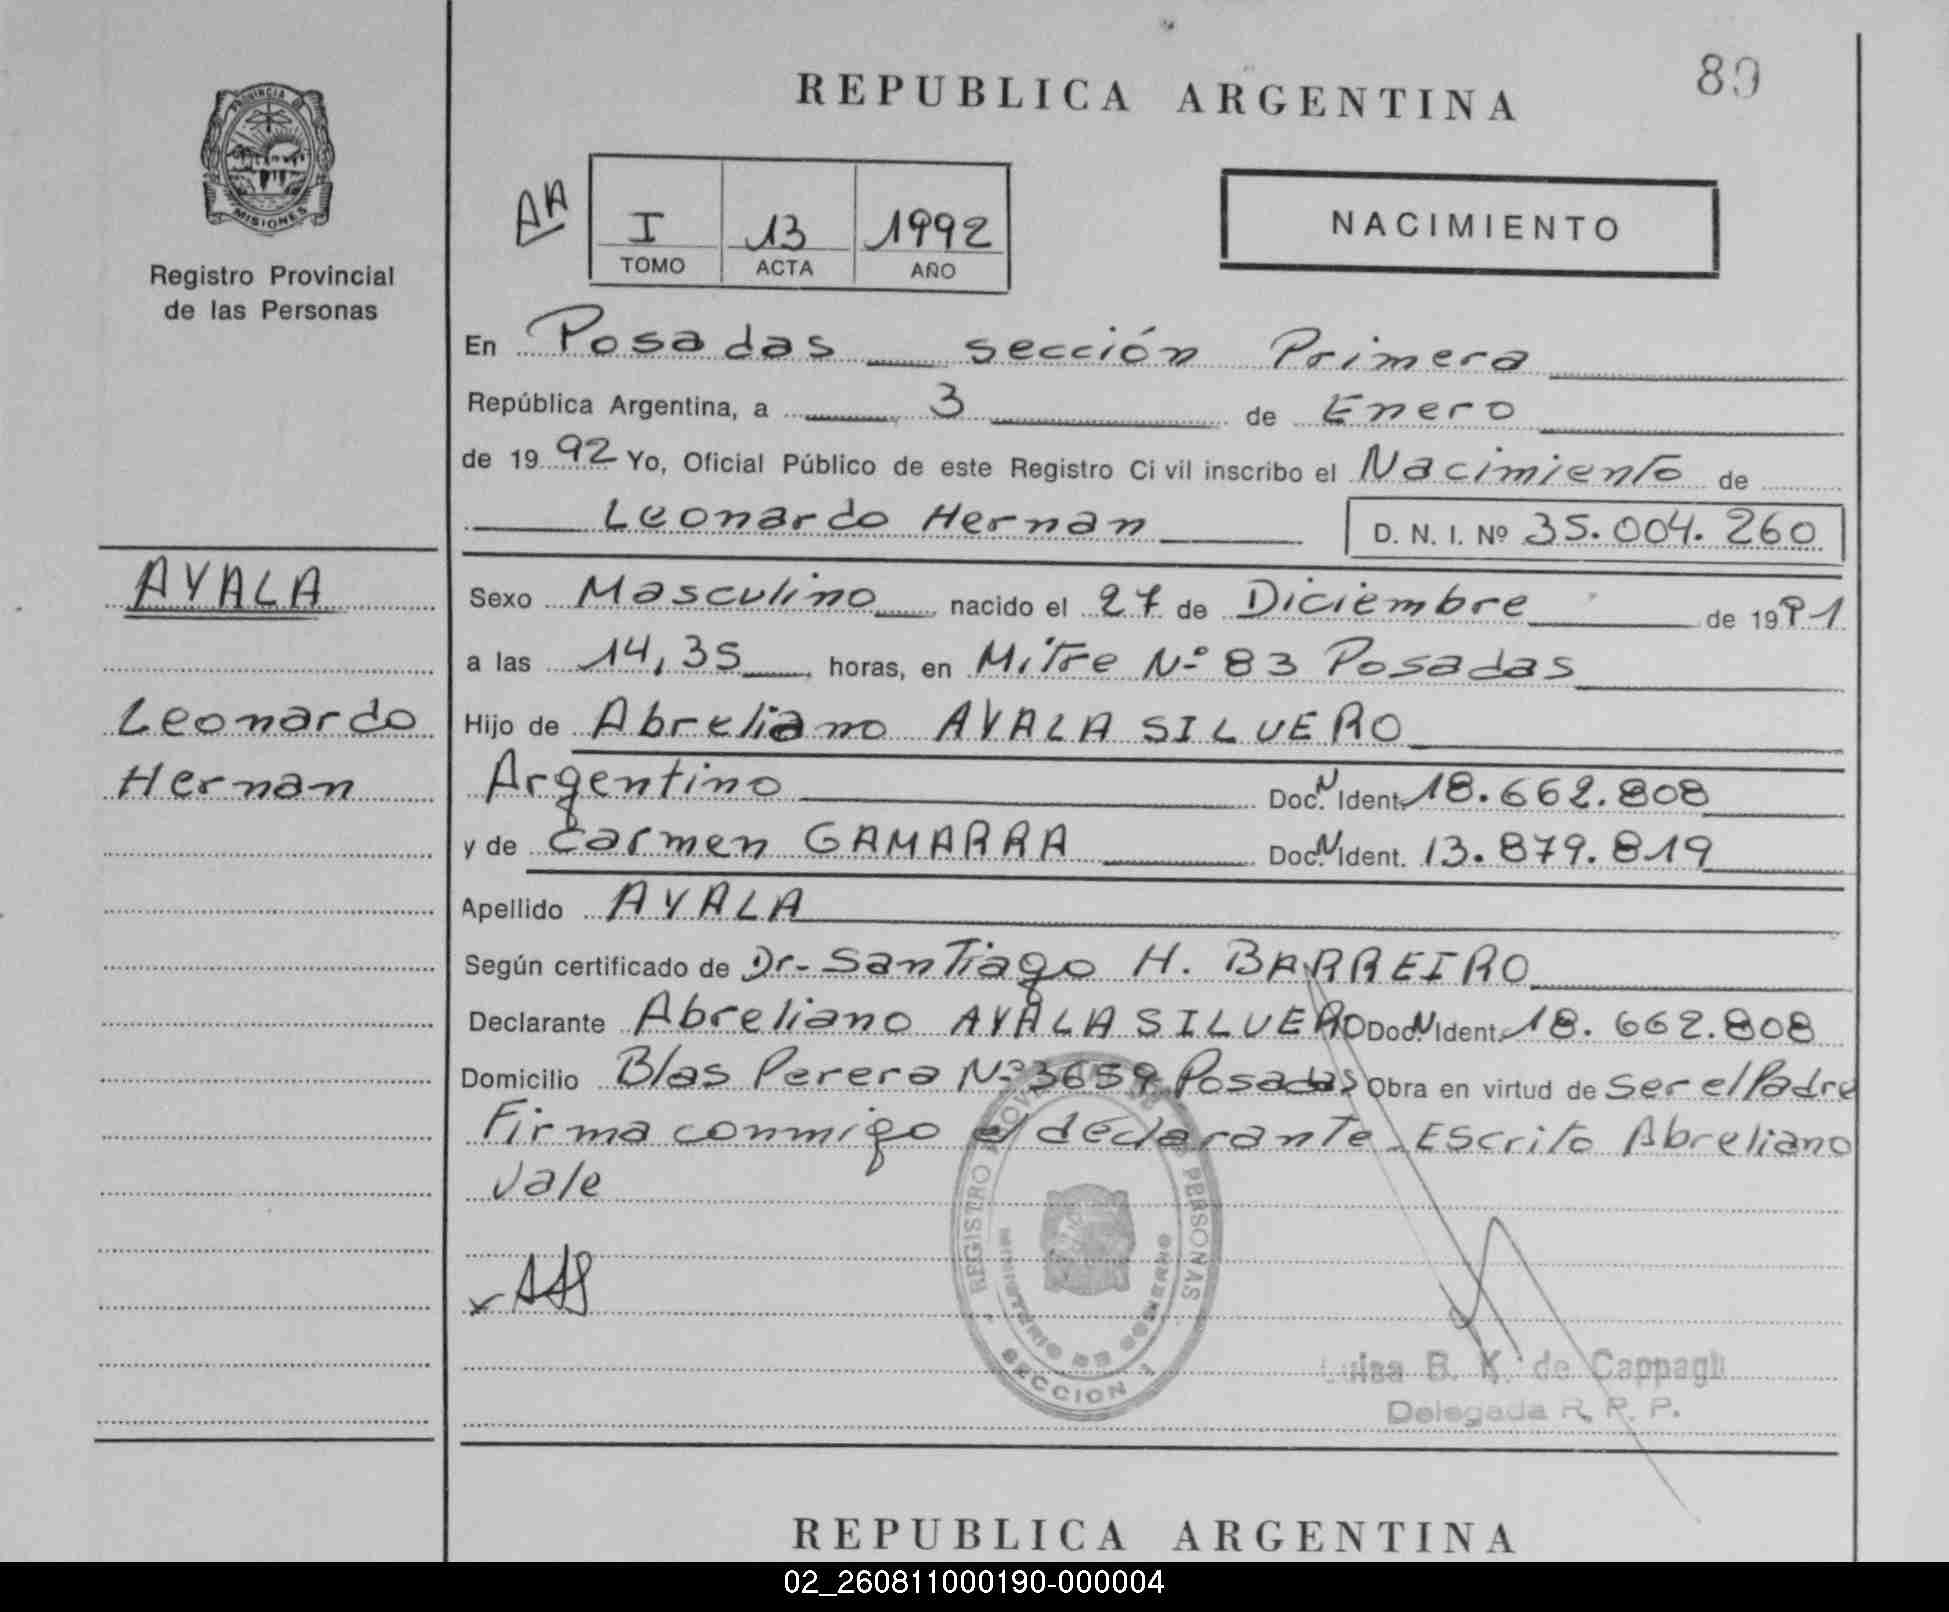 REPUBLICA ARGENTINA
89
PROVINCIA DE
MISIONES
Registro Provincial
de las Personas
AA
I 13 1992
TOMO ACTA AÑO
NACIMIENTO
En Posadas sección Primera
República Argentina, a 3 de Enero
de 1992 Yo, Oficial Público de este Registro Civil inscribo el Nacimiento de
Leonardo Hernan D. N. I. Nº 35.004.260
AYALA
Leonardo
Hernan
Sexo Masculino nacido el 27 de Diciembre de 1991
a las 14,35 horas, en Mitre Nº 83 Posadas
Hijo de Abreliano AYALA SILVERO
Argentino Doc. N Ident. 18.662.808
y de Carmen GAMARRA Doc. N Ident. 13.879.819
Apellido AYALA
Según certificado de Dr- Santiago H. BARREIRO
Declarante Abreliano AYALA SILVERO Doc. N Ident. 18.662.808
Domicilio Blas Perera Nº 3659 Posadas Obra en virtud de Ser el Padre
Firma conmigo el declarante - Escrito Abreliano
Vale
REGISTRO PROVINCIAL DE LAS PERSONAS
MINISTERIO DE GOBIERNO
SECCION 1
Luisa B. K. de Cappagli
Delegada R. P. P.
REPUBLICA ARGENTINA
02_260811000190-000004